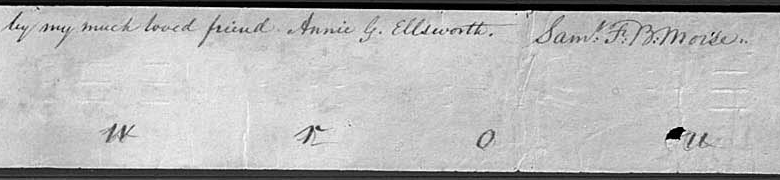 by my much loved friend Annie G. Ellsworth. Sam¹. F. B. Morse.
W r o u